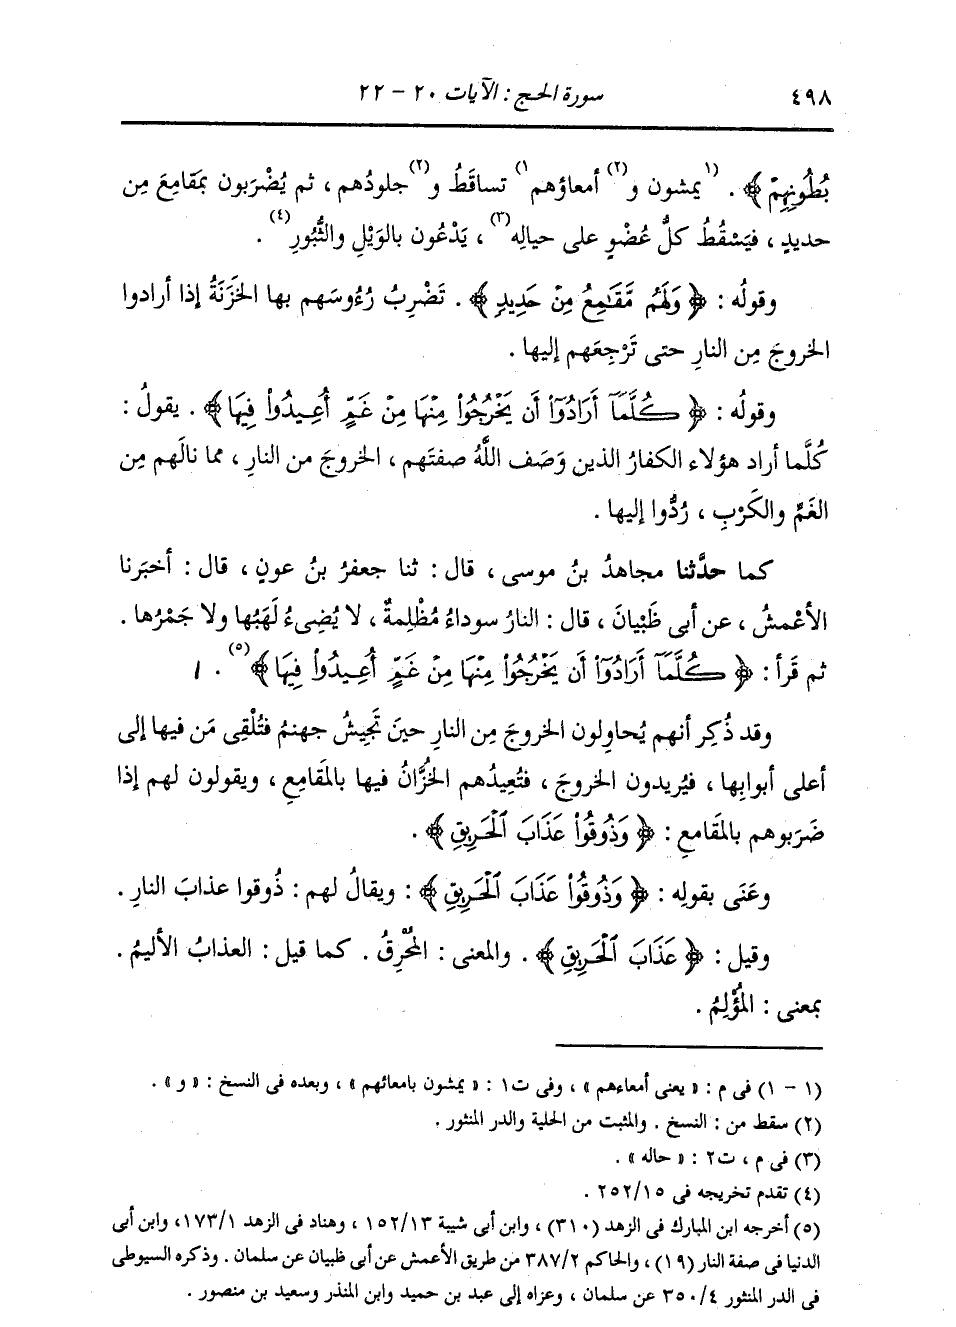 ٤٩٨ سورة الحج : الآيات ٢٠ - ٢٢
بُطُونِهِمْ ﴾ . (١ يمشون و(٢) أمعاؤهم١) تساقَطُ و(٢) جلودُهم ، ثم يُضْرَبون بمَقامِعَ مِن
حديدٍ ، فيَسْقُطُ كلُّ عُضْوٍ على حيالِه(٣) ، يَدْعُون بالوَيْلِ والثُّبُورِ(٤) .
وقولُه : ﴿ وَلَهُم مَّقَٰمِعُ مِنْ حَدِيدٍ ﴾ . تَضْرِبُ رُءُوسَهم بها الخَزَنَةُ إذا أرادوا
الخروجَ مِن النارِ حتى تَرْجِعَهم إليها .
وقولُه : ﴿ كُلَّمَآ أَرَادُوٓا۟ أَن يَخْرُجُوا۟ مِنْهَا مِنْ غَمٍّ أُعِيدُوا۟ فِيهَا ﴾ . يقولُ :
كُلَّما أراد هؤلاء الكفارُ الذين وَصَف اللَّهُ صفتَهم ، الخروجَ من النارِ ، مما نالَهم مِن
الغَمِّ والكَرْبِ ، رُدُّوا إليها .
كما حدَّثنا مجاهدُ بنُ موسى ، قال : ثنا جعفرُ بنُ عونٍ ، قال : أخبَرنا
الأعْمشُ ، عن أبى ظَبْيانَ ، قال : النارُ سوداءُ مُظْلِمةٌ ، لا يُضِىءُ لَهَبُها ولا جَمْرُها .
ثم قَرأ : ﴿ كُلَّمَآ أَرَادُوٓا۟ أَن يَخْرُجُوا۟ مِنْهَا مِنْ غَمٍّ أُعِيدُوا۟ فِيهَا ﴾(٥) . /
وقد ذُكِر أنهم يُحاوِلون الخروجَ مِن النارِ حينَ تَجِيشُ جهنمُ فتُلْقِى مَن فيها إلى
أعلى أبوابِها ، فيُريدون الخروجَ ، فتُعِيدُهم الخُزَّانُ فيها بالمَقامِعِ ، ويقولون لهم إذا
ضَرَبوهم بالمَقامعِ : ﴿ وَذُوقُوا۟ عَذَابَ ٱلْحَرِيقِ ﴾ .
وعَنَى بقولِه : ﴿ وَذُوقُوا۟ عَذَابَ ٱلْحَرِيقِ ﴾ : ويقالُ لهم : ذُوقوا عذابَ النارِ .
وقيل : ﴿ عَذَابَ ٱلْحَرِيقِ ﴾ . والمعنى : المُحْرِقُ . كما قيل : العذابُ الأليمُ .
بمعنى : المُؤْلِمُ .
(١ - ١) فى م : « يعنى أمعاءهم » ، وفى ت١ : « يمشون بامعائهم » ، وبعده فى النسخ : « و » .
(٢) سقط من : النسخ . والمثبت من الحلية والدر المنثور .
(٣) فى م ، ت٢ : « حاله » .
(٤) تقدم تخريجه فى ٢٥٢/١٥ .
(٥) أخرجه ابن المبارك فى الزهد (٣١٠) ، وابن أبى شيبة ١٥٢/١٣ ، وهناد فى الزهد ١٧٣/١، وابن أبى
الدنيا فى صفة النار (١٩) ، والحاكم ٣٨٧/٢ من طريق الأعمش عن أبى ظبيان عن سلمان . وذكره السيوطى
فى الدر المنثور ٣٥٠/٤ عن سلمان ، وعزاه إلى عبد بن حميد وابن المنذر وسعيد بن منصور .